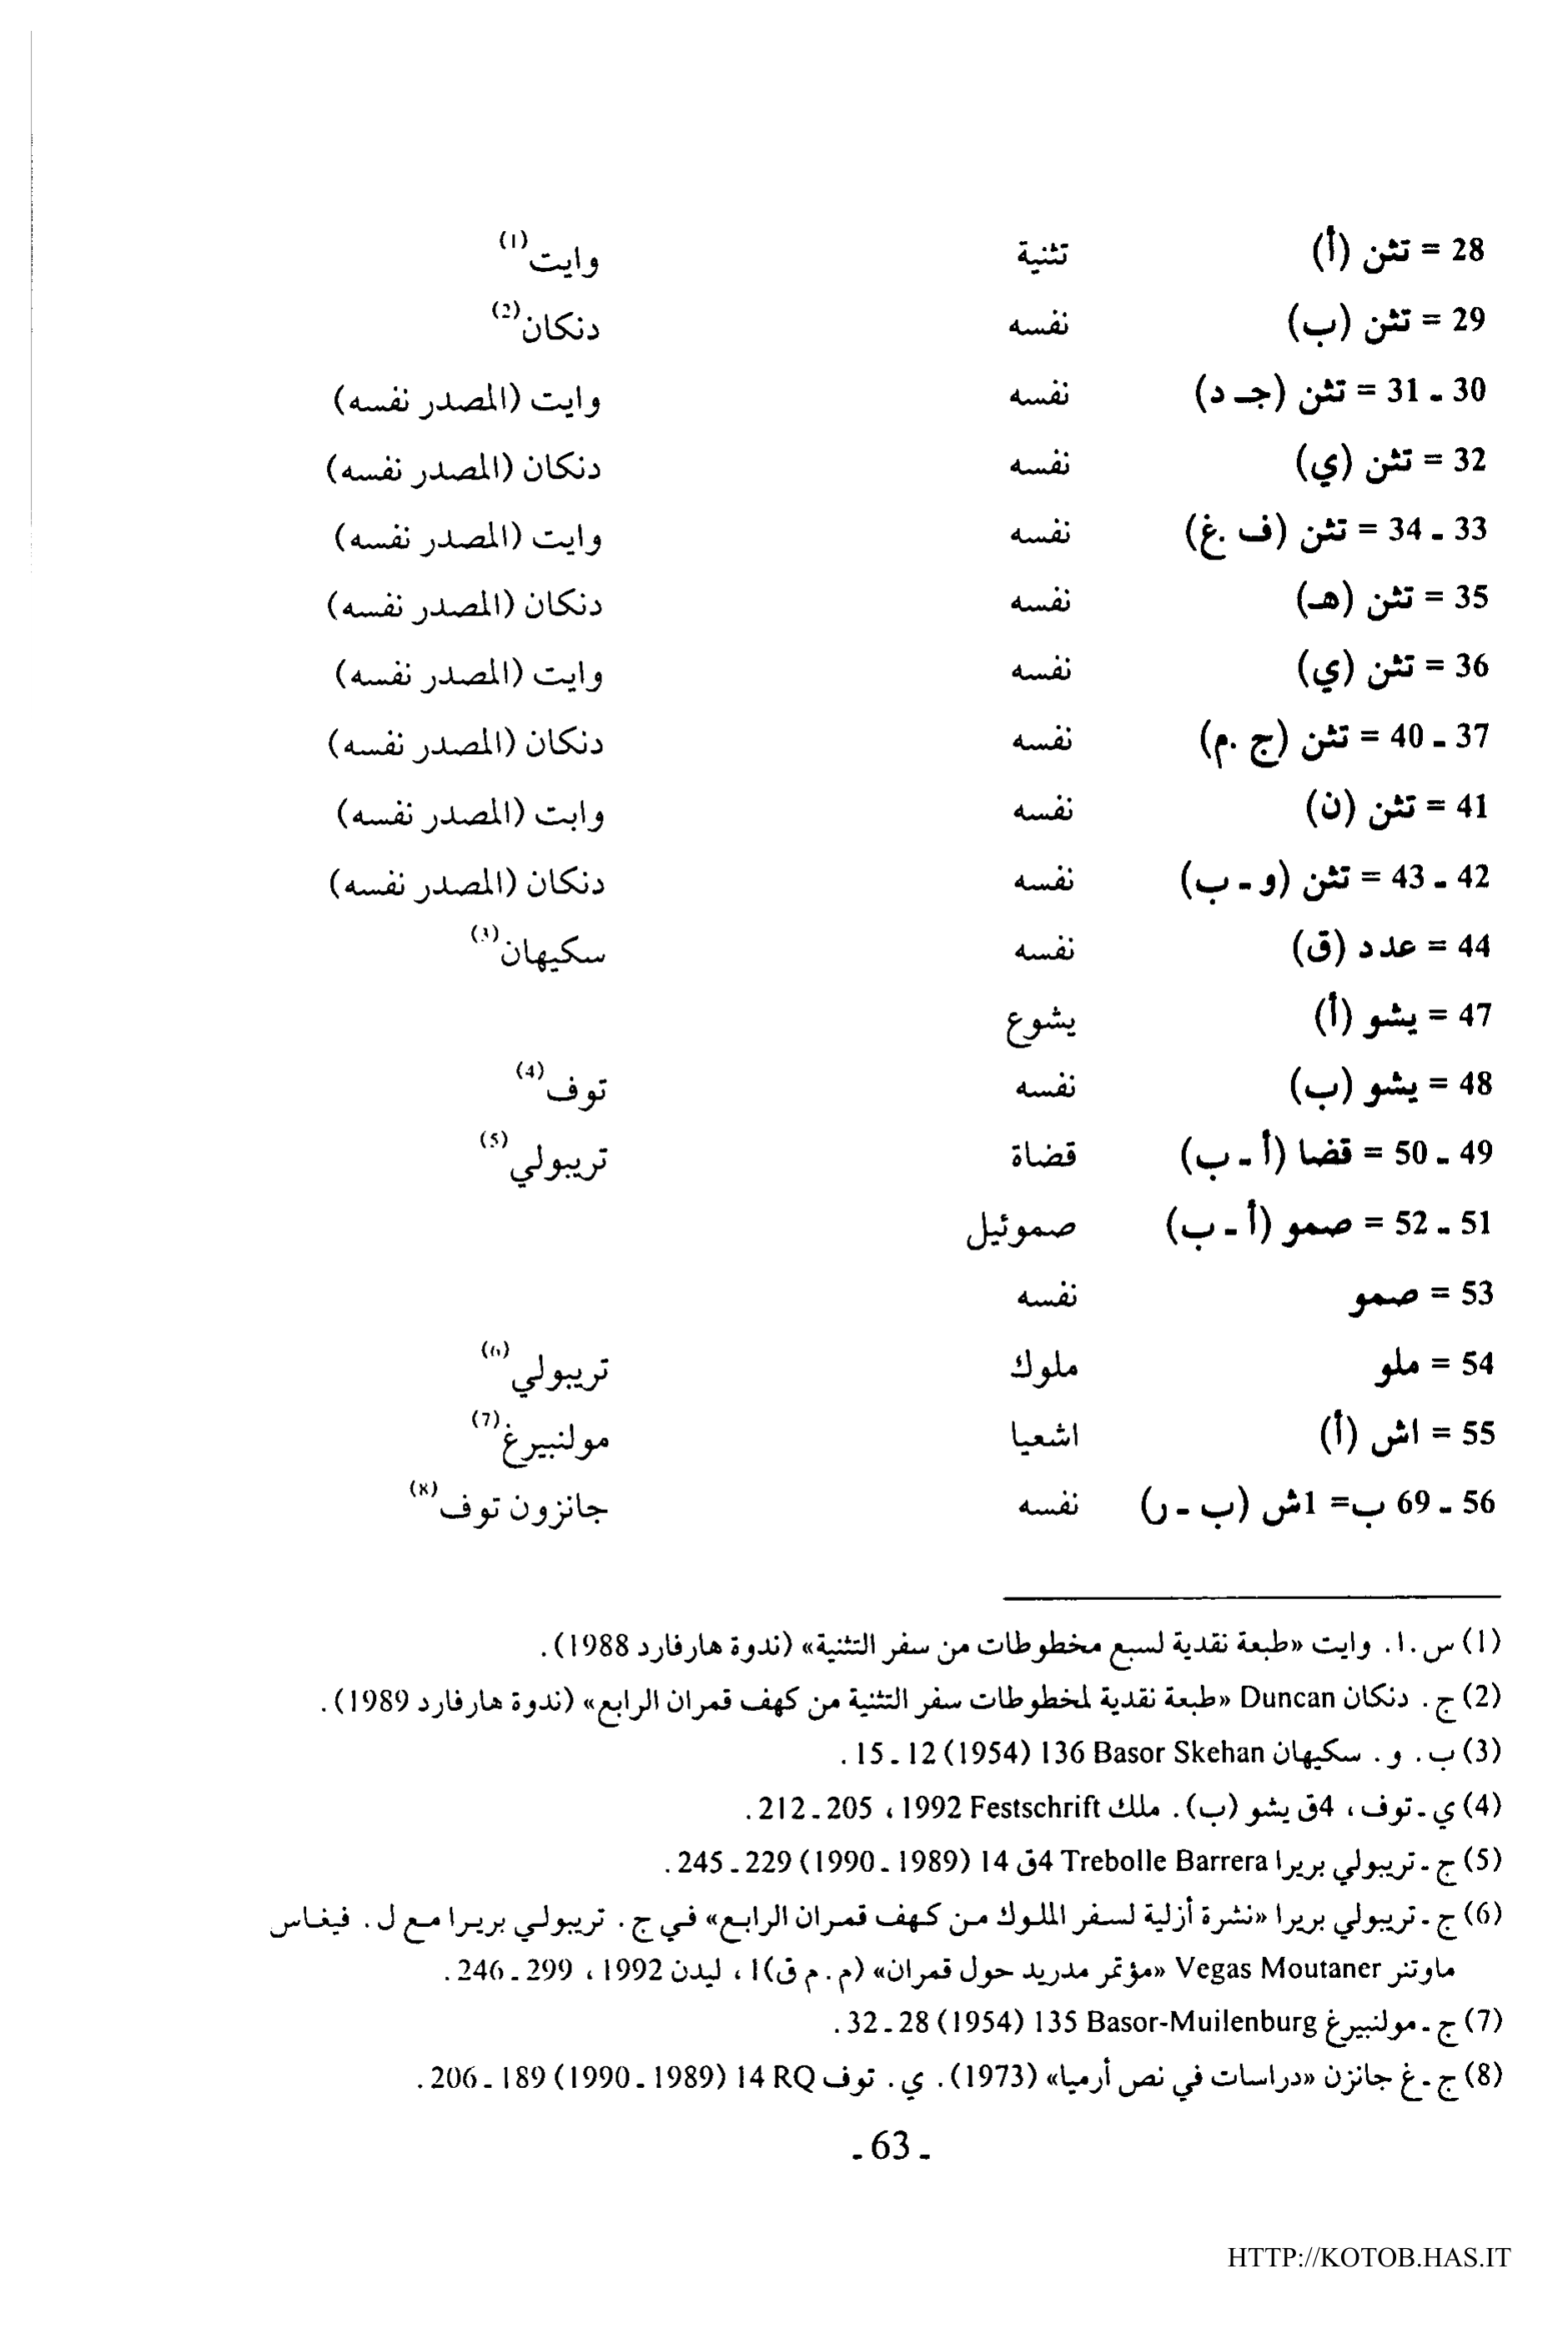 28 = تثن (أ) تثنية وايت(1)
29 = تثن (ب) نفسه دنكان(2)
30 ـ 31 = تثن (جـ د) نفسه وايت (المصدر نفسه)
32 = تثن (ي) نفسه دنكان (المصدر نفسه)
33 ـ 34 = تثن (ف .غ) نفسه وايت (المصدر نفسه)
35 = تثن (هـ) نفسه دنكان (المصدر نفسه)
36 = تثن (ي) نفسه وايت (المصدر نفسه)
37 ـ 40 = تثن (ج .م) نفسه دنكان (المصدر نفسه)
41 = تثن (ن) نفسه وابت (المصدر نفسه)
42 ـ 43 = تثن (و ـ ب) نفسه دنكان (المصدر نفسه)
44 = عدد (ق) نفسه سكيهان(3)
47 = يشو (أ) يشوع
48 = يشو (ب) نفسه توف(4)
49 ـ 50 = قضا (أ ـ ب) قضاة تريبولي(5)
51 ـ 52 = صمو (أ ـ ب) صموئيل
53 = صمو نفسه
54 = ملو ملوك تريبولي(6)
55 = اش (أ) اشعيا مولنبيرغ(7)
56 ـ 69 ب= 1ش (ب ـ ر) نفسه جانزون توف(8)
(1) س.ا. وايت «طبعة نقدية لسبع مخطوطات من سفر التثنية» (ندوة هارفارد 1988).
(2) ج. دنكان Duncan «طبعة نقدية لمخطوطات سفر التثنية من كهف قمران الرابع» (ندوة هارفارد 1989).
(3) ب. و. سكيهان Basor Skehan 136 (1954) 12 ـ 15.
(4) ي ـ توف، 4ق يشو (ب). ملك Festschrift 1992، 205 ـ 212.
(5) ج ـ تريبولي بريرا Trebolle Barrera 4ق 14 (1989 ـ 1990) 229 ـ 245.
(6) ج ـ تريبولي بريرا «نشرة أزلية لسفر الملوك من كهف قمران الرابع» في ج. تريبولي بريرا مع ل. فيغاس
ماوتنر Vegas Moutaner «مؤتمر مدريد حول قمران» (م.م ق)ا، ليدن 1992، 299 ـ 246.
(7) ج ـ مولنبيرغ Basor-Muilenburg 135 (1954) 28 ـ 32.
(8) ج ـ غ جانزن «دراسات في نص أرميا» (1973). ي. توف RQ 14 (1989 ـ 1990) 189 ـ 206.
ـ 63 ـ
HTTP://KOTOB.HAS.IT